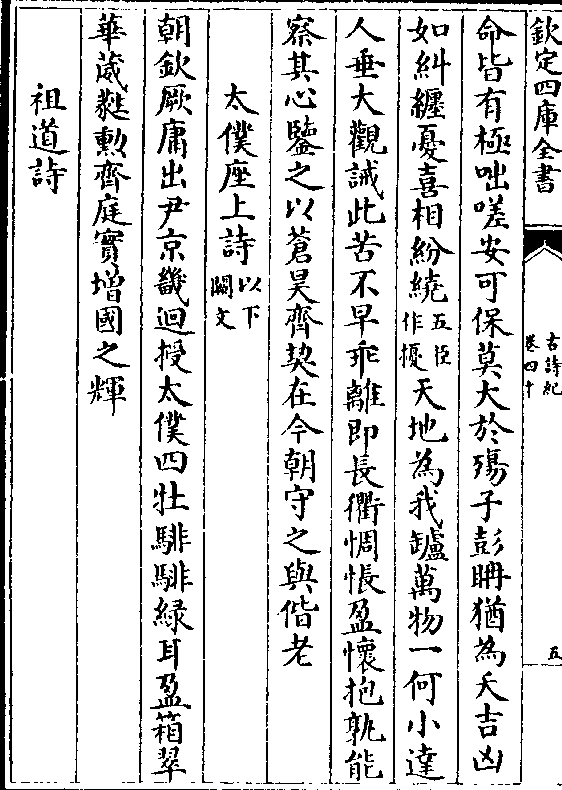 欽定四庫全書
古詩紀
卷四十
五
命皆有極咄嗟安可保莫大於殤子彭聃猶為夭吉凶
如糾纆憂喜相紛繞五臣作擾天地為我罏萬物一何小達
人垂大觀誡此苦不早乖離即長衢惆悵盈懷抱孰能
察其心鑒之以蒼昊齊契在今朝守之與偕老
太僕座上詩以下闕文
朝欽厥庸出尹京畿迴授太僕四牡騑騑緑耳盈箱翠
華葳蕤勲齊庭實增國之輝
祖道詩